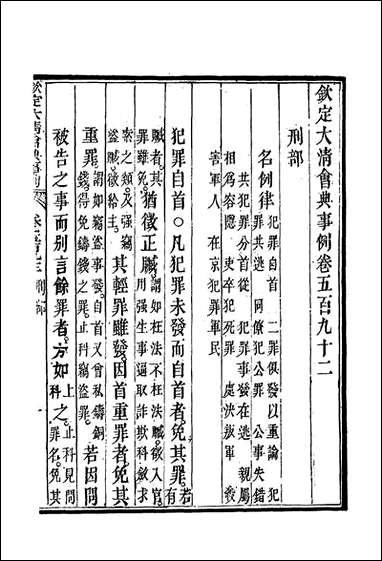 欽定大清會典事例卷五百九十二
刑部
名例律
犯罪自首 二罪俱發以重論 犯
罪共逃 同僚犯公罪 公事失錯
共犯罪分首從 犯罪事發在逃 親屬
相為容隱 吏卒犯死罪 處決叛軍 殺
害軍人 在京犯罪軍民
犯罪自首○凡犯罪未發而自首者。免其罪。若有
贓者。其罪雖免。猶徵正贓。謂如枉法不枉法贓。徵入官。用强生事逼取詐欺科斂求
索之類。及强竊盜贓。徵給主。其輕罪雖發。因首重罪者。免其
重罪。謂如竊盜事發。自首又曾私鑄銅錢。得免鑄錢之罪。止科竊盜罪。若因問
被告之事而別言餘罪者。亦如上科之。止科見問罪名。免其